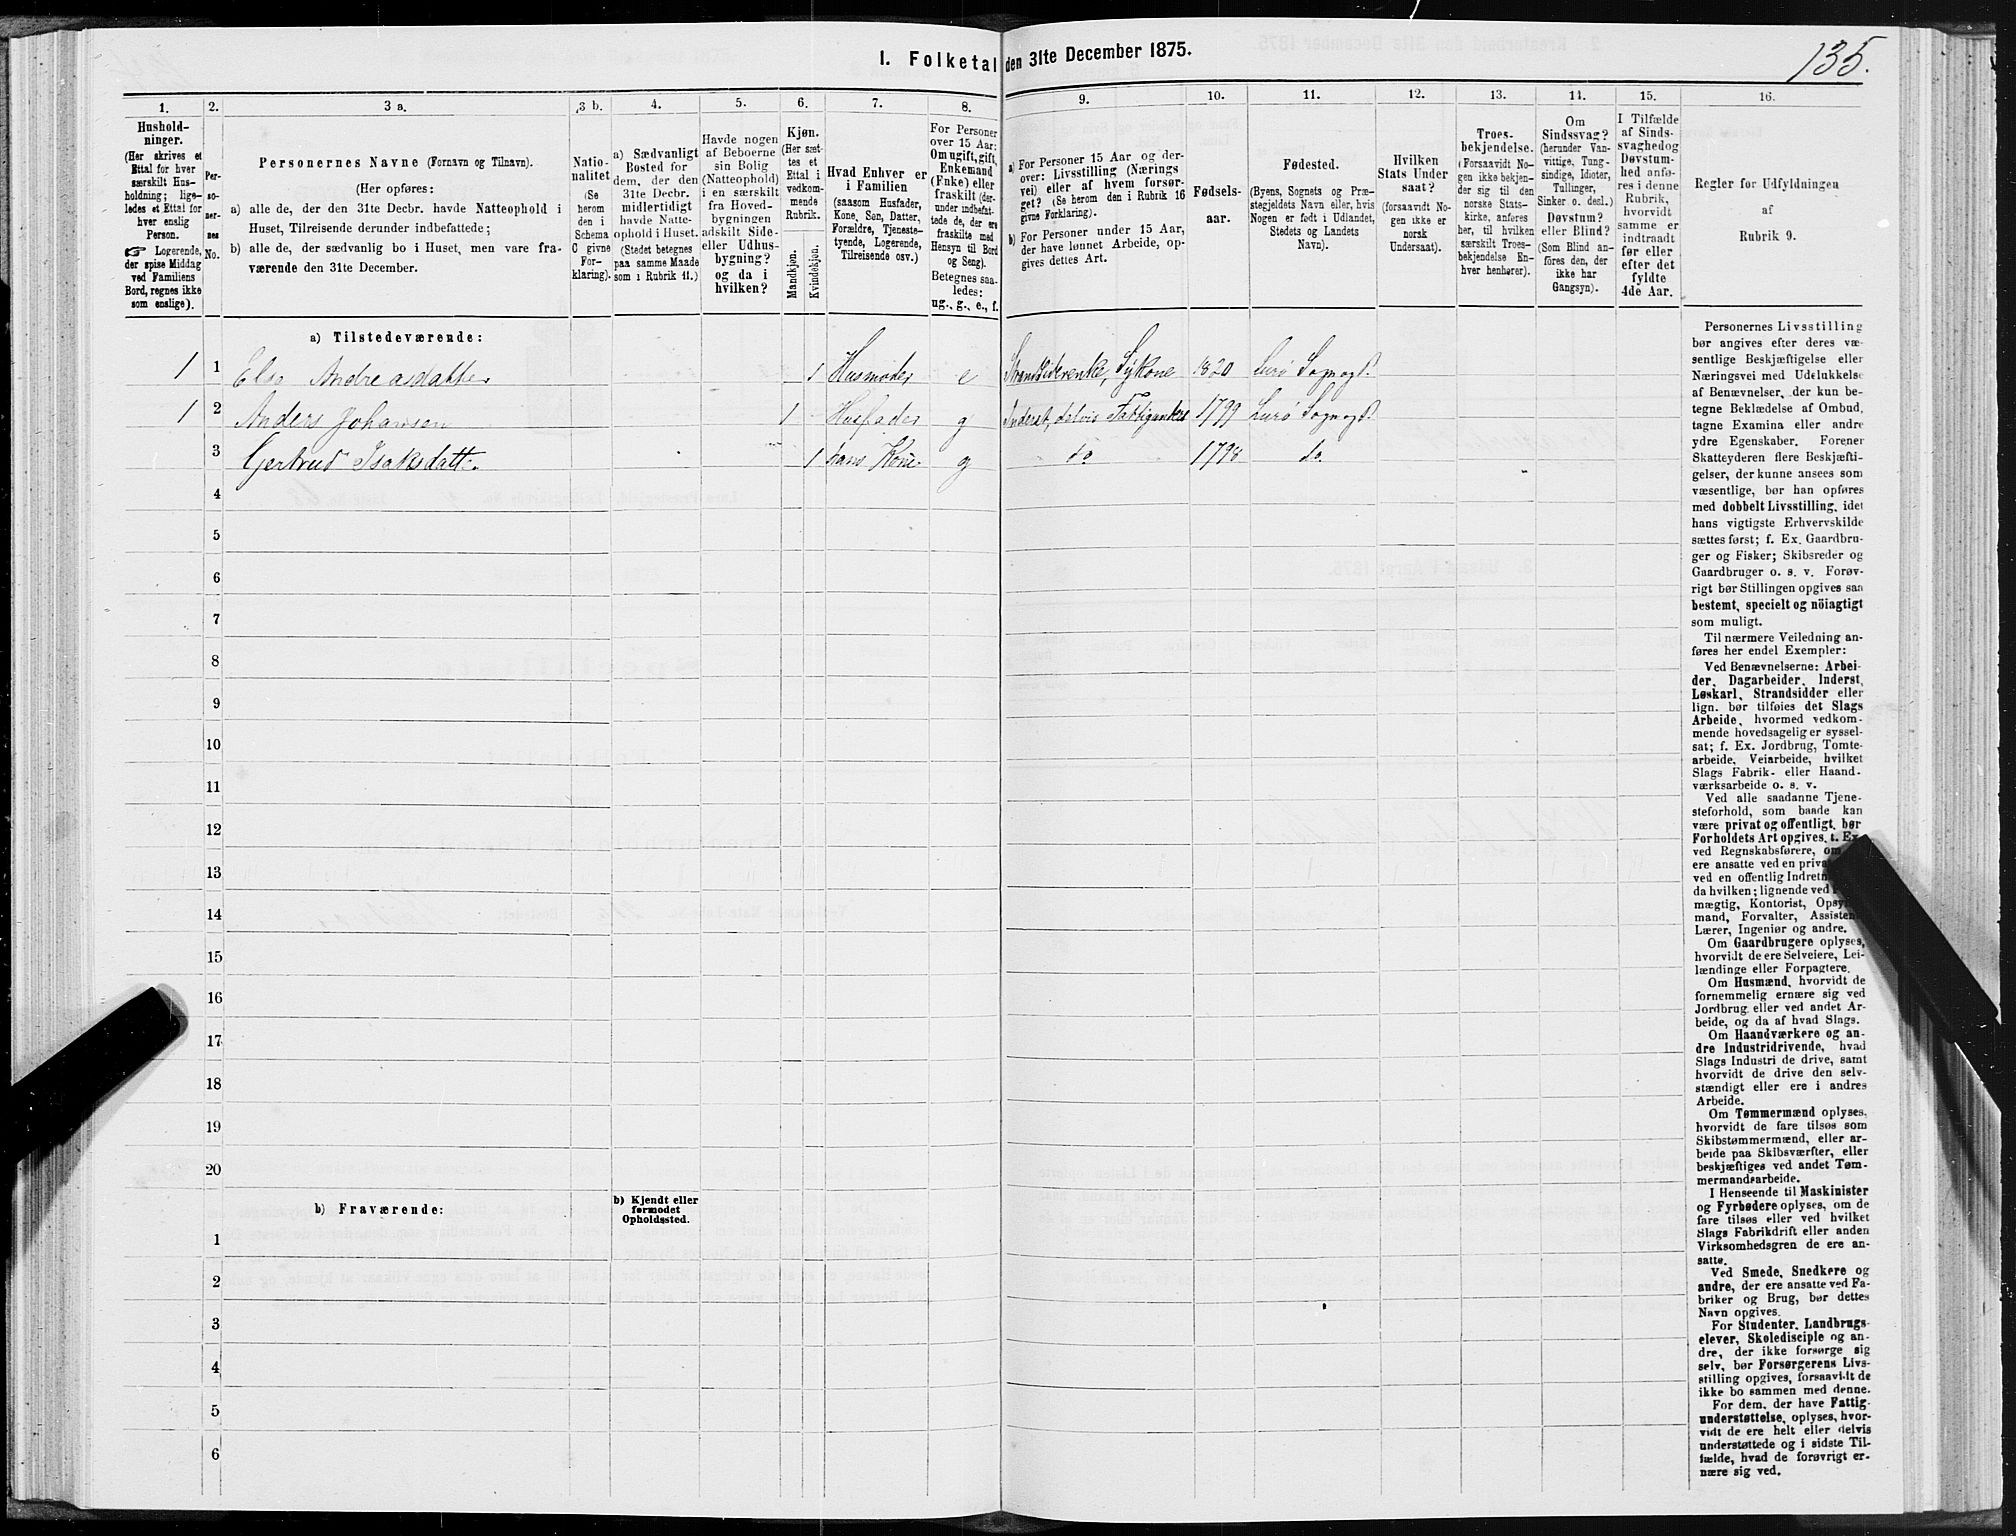 I. Folketal den 31te December 1875.
135.
1.
2.
3 a.
3 b.
4.
5.
6.
7.
8.
9.
10.
11.
12.
13.
14.
15.
16.
Hushold-
ninger.
(Her skrives et
Ettal for hver
særskilt Hus-
holdning; lige-
ledes et Ettal for
hver enslig
Person.
☞ Logerende,
der spise Middag
ved Familiens
Bord, regnes ikke
som enslige).
Per-
so-
ner-
nes
No.
Personernes Navne (Fornavn og Tilnavn).
(Her opføres:
a) alle de, der den 31te Decbr. havde Natteophold i
Huset, Tilreisende derunder indbefattede;
b) alle de, der sædvanlig bo i Huset, men vare fra-
værende den 31te December.
Natio-
nalitet
(Se
herom
den i
Schema
C givne
For-
klaring).
a) Sædvanligt
Bosted for
dem, der den
31te Decbr.
midlertidigt
havde Natte-
ophold i Huset.
(Stedet betegnes
paa samme Maade
som i Rubrik 11.)
Havde nogen
af Beboerne
sin Bolig
(Natteophold)
i en særskilt
fra Hoved-
bygningen
adskilt Side-
eller Udhus-
bygning?
og da i
hvilken?
Kjøn.
(Her sæt-
tes et
Ettal i
vedkom-
mende
Rubrik.
Mandkjøn.
Kvindekjøn.
Hvad Enhver er
i Familien
(saasom Husfader,
Kone, Søn, Datter,
Forældre, Tjeneste-
tyende, Logerende,
Tilreisende osv.)
For Personer
over 15 Aar:
Om ugift, gift,
Enkemand
(Enke) eller
fraskilt (der-
under indbefat-
tede de, der ere
fraskilte med
Hensyn til Bord
og Seng).
Betegnes saa-
ledes:
ug., g., e., f.
a) For Personer 15 Aar og der-
over: Livsstilling (Nærings
vei) eller af hvem forsør-
get? (Se herom den i Rubrik 16
givne Forklaring).
b) For Personer under 15 Aar,
der have lønnet Arbeide, op-
gives dettes Art.
Fødsels-
aar.
Fødested.
(Byens, Sognets og Præ-
stegjeldets Navn eller, hvis
Nogen er født i Udlandet,
Stedets og Landets
Navn).
Hvilken
Stats Under
saat?
(forsaavidt No-
gen ikke er
norsk
Undersaat).
Troes-
bekjendelse.
(Forsaavidt No-
gen ikke bekjen-
der sig til den
norske Stats-
kirke, anføres
her, til hvilken
særskilt Troes-
bekjendelse En-
hver henhører).
Om
Sindssvag?
(herunder Van-
vittige, Tung-
sindige, Idioter,
Tullinger,
Sinker o. desl.)
Døvstum?
eller Blind?
(Som Blind an-
føres den, der
ikke har
Gangsyn).
I Tilfælde
af Sinds-
svaghed og
Døvstum-
hed anfø-
res i denne
Rubrik,
hvorvidt
samme er
indtraadt
før eller
efter det
fyldte
4de Aar.
Regler for Udfyldningen
af
Rubrik 9.
a) Tilstedeværende:
1 1 Else Andreasdatter 1 Husmoder e Strandsiderenke, Sykone 1820 Lurø Sogn og P.
1 2 Anders Johansen 1 Husfader g Inderst, delvis Fattigunders 1799 Lurø Sogn og P.
3 Gertrud Isaksdatt. 1 hans Kone g do 1798 do.
4
5
6
7
8
9
10
11
12
13
14
15
16
17
18
19
20
b) Fraværende:
b) Kjendt eller
formodet
Opholdssted.
1
2
3
4
5
6
Personernes Livsstilling
bør angives efter deres væ-
sentlige Beskjæftigelse eller
Næringsvei med Udelukkelse
af Benævnelser, der kun be-
tegne Beklædelse af Ombud,
tagne Examina eller andre
ydre Egenskaber. Forener
Skatteyderen flere Beskjæfti-
gelser, der kunne ansees som
væsentlige, bør han opføres
med dobbelt Livsstilling, idet
hans vigtigste Erhvervskilde
sættes først; f. Ex. Gaardbru-
ger og Fisker; Skibsreder og
Gaardbruger o. s. v. Forøv-
rigt bør Stillingen opgives saa
bestemt, specielt og nöiagtigt
som muligt.
Til nærmere Veiledning an-
føres her endel Exempler:
Ved Benævnelserne: Arbei-
der, Dagarbeider, Inderst,
Løskarl, Strandsidder eller
lign. bør tilføies det Slags
Arbeide, hvormed vedkom-
mende hovedsagelig er syssel-
sat; f. Ex. Jordbrug, Tomte-
arbeide, Veiarbeide, hvilket
Slags Fabrik- eller Haand-
værksarbeide o. s. v.
Ved alle saadanne Tjene-
steforhold, som baade kan
være privat og offentligt, bør
Forholdets Art opgives, t. Ex.
ved Regnskabsførere, om
ere ansatte ved en priva
ved en offentlig Indretn
da hvilken; lignende ved
mægtig, Kontorist, Opsy
mand, Forvalter, Assistent
Lærer, Ingeniør og andre.
Om Gaardbrugere oplyses,
hvorvidt de ere Selveiere, Lei-
lændinge eller Forpagtere.
Om Husmænd, hvorvidt de
fornemmelig ernære sig ved
Jordbrug eller ved andet Ar-
beide, og da af hvad Slags.
Om Haandværkere og an-
dre Industridrivende, hvad
Slags Industri de drive, samt
hvorvidt de drive den selv-
stændigt eller ere i andres
Arbeide.
Om Tømmermænd oplyses,
hvorvidt de fare tilsøs som
Skibstømmermænd, eller ar-
beide paa Skibsværfter, eller
beskjæftiges ved andet Tøm-
mermandsarbeide.
I Henseende til Maskinister
og Fyrbødere oplyses, om de
fare tilsøs eller ved hvilket
Slags Fabrikdrift eller anden
Virksomhedsgren de ere an-
satte.
Ved Smede, Snedkere og
andre, der ere ansatte ved Fa-
briker og Brug, bør dettes
Navn opgives.
For Studenter, Landbrugs-
elever, Skoledisciple og an-
dre, der ikke forsørge sig
selv, bør Forsørgerens Livs-
stilling opgives, forsaavidt de
ikke bo sammen med denne.
For dem, der have Fattig-
understøttelse, oplyses, hvor-
vidt de ere helt eller delvis
understøttede og i sidste Til-
fælde, hvad de forøvrigt er-
nære sig ved.